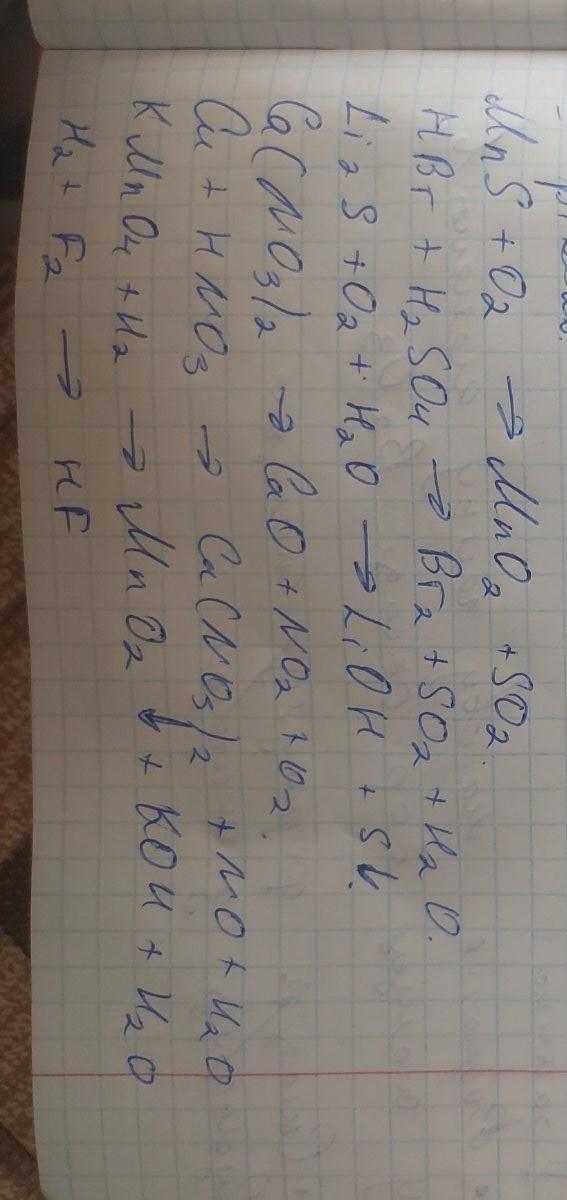 MnS + O₂ → MnO₂ + SO₂.
HBr + H₂SO₄ → Br₂ + SO₂ + H₂O.
Li₂S + O₂ + H₂O → LiOH + S↓.
Ca(NO₃)₂ → CaO + NO₂ + O₂.
Cu + HNO₃ → Cu(NO₃)₂ + NO + H₂O
KMnO₄ + H₂ → MnO₂↓ + KOH + H₂O
H₂ + F₂ → HF